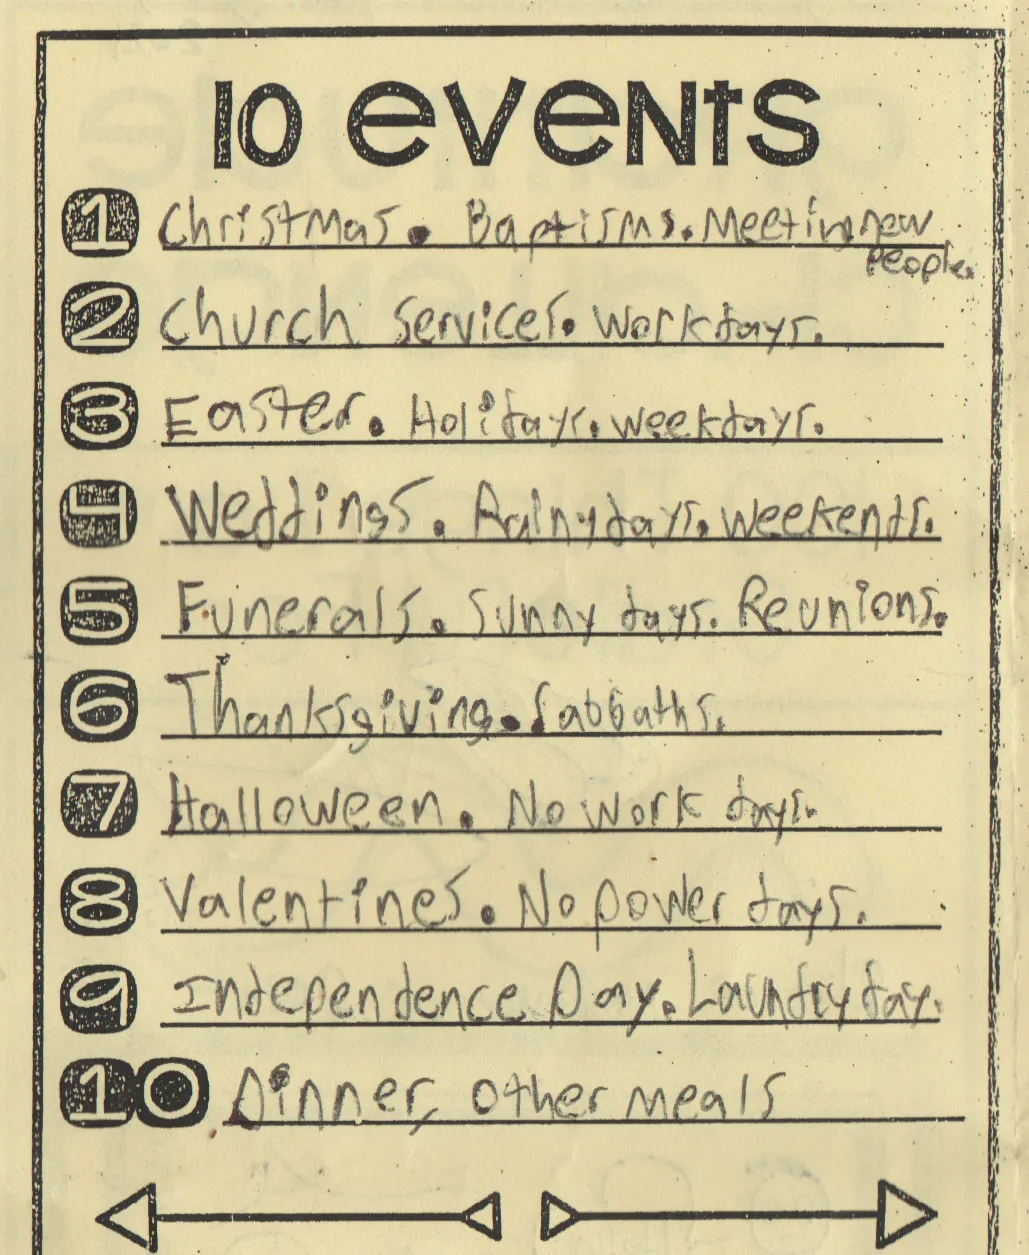 10 eveNts
1 Christmas. Baptisms. Meeting new
people.
2 Church Services. Workdays.
3 Easter. Holidays. weekdays.
4 Weddings. Rainy days. weekends.
5 Funerals. Sunny days. Reunions.
6 Thanksgiving. Sabbaths.
7 Halloween. No work days.
8 Valentines. No power days.
9 Independence Day. Laundry day.
10 Dinner, other meals